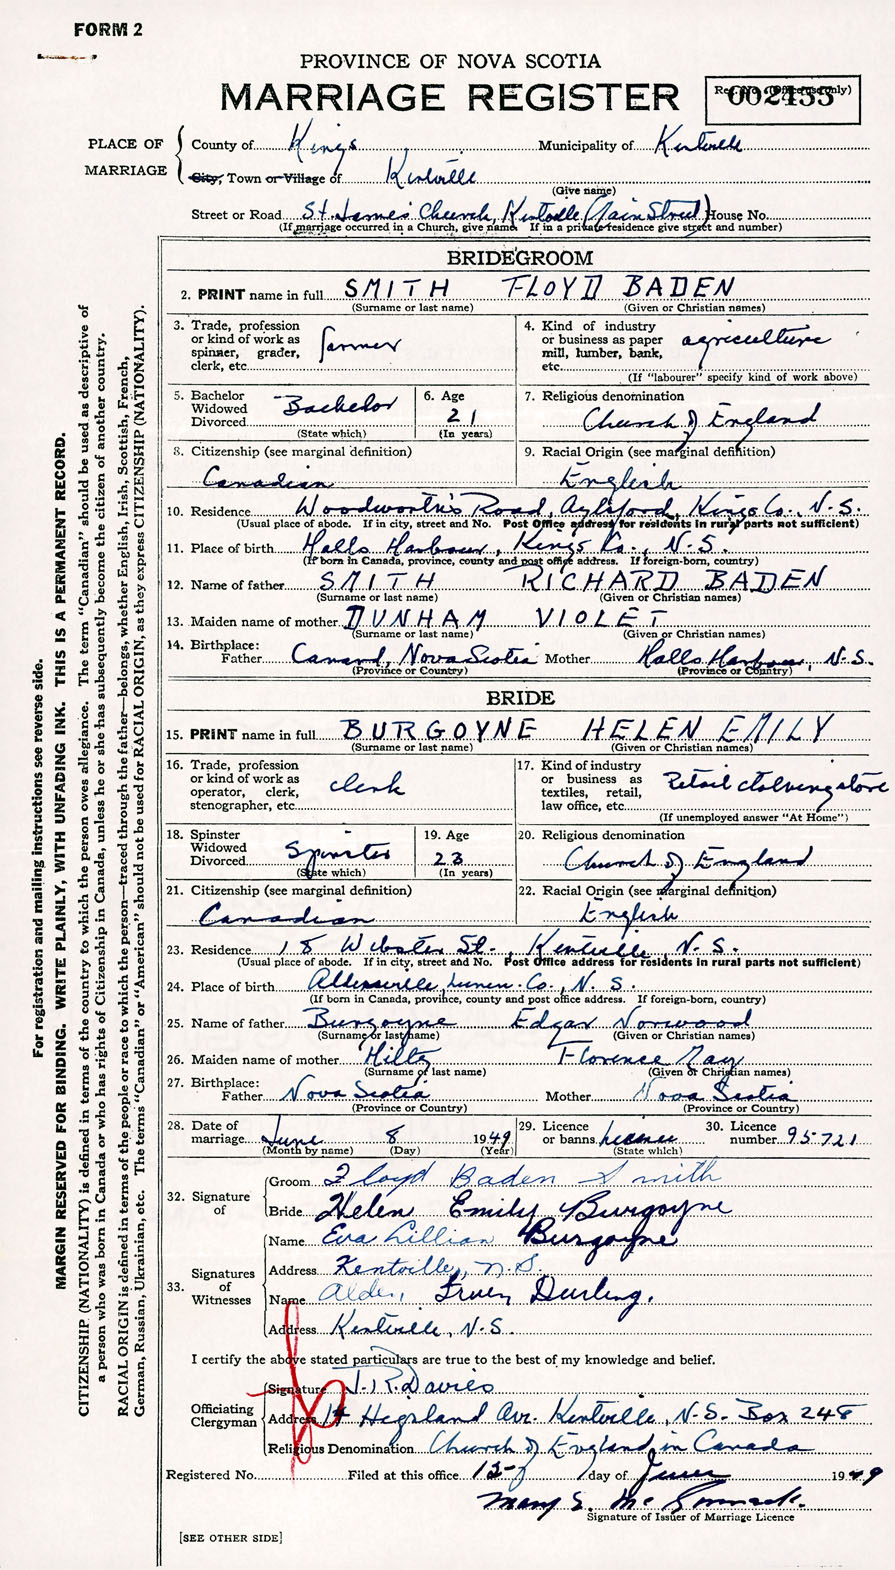 FORM 2
PROVINCE OF NOVA SCOTIA
MARRIAGE REGISTER
Reg. No. (Office use only)
002433
PLACE OF MARRIAGE
County of Kings Municipality of Kentville
City, Town or Village of Kentville
(Give name)
Street or Road St. James Church, Kentville (Main Street) House No.
(If marriage occurred in a Church, give name. If in a private residence give street and number)
BRIDEGROOM
2. PRINT name in full SMITH FLOYD BADEN
(Surname or last name) (Given or Christian names)
3. Trade, profession or kind of work as spinner, grader, clerk, etc. farmer
4. Kind of industry or business as paper mill, lumber, bank, etc. agriculture
(If "labourer" specify kind of work above)
5. Bachelor Widowed Divorced Bachelor
(State which)
6. Age 21
(In years)
7. Religious denomination
Church of England
8. Citizenship (see marginal definition)
Canadian
9. Racial Origin (see marginal definition)
English
10. Residence Woodworth's Road, Aylsford, Kings Co., N.S.
(Usual place of abode. If in city, street and No. Post Office address for residents in rural parts not sufficient)
11. Place of birth Halls Harbour, Kings Co., N.S.
(If born in Canada, province, county and post office address. If foreign-born, country)
12. Name of father SMITH RICHARD BADEN
(Surname or last name) (Given or Christian names)
13. Maiden name of mother DUNHAM VIOLET
(Surname or last name) (Given or Christian names)
14. Birthplace:
Father Canard, Nova Scotia Mother Halls Harbour, N.S.
(Province or Country) (Province or Country)
BRIDE
15. PRINT name in full BURGOYNE HELEN EMILY
(Surname or last name) (Given or Christian names)
16. Trade, profession or kind of work as operator, clerk, stenographer, etc. clerk
17. Kind of industry or business as textiles, retail, law office, etc. Retail clothing store
(If unemployed answer "At Home")
18. Spinster Widowed Divorced Spinster
(State which)
19. Age 23
(In years)
20. Religious denomination
Church of England
21. Citizenship (see marginal definition)
Canadian
22. Racial Origin (see marginal definition)
English
23. Residence 18 Webster St., Kentville N.S.
(Usual place of abode. If in city, street and No. Post Office address for residents in rural parts not sufficient)
24. Place of birth Lunen. Co., N.S.
(If born in Canada, province, county and post office address. If foreign-born, country)
25. Name of father Burgoyne Edgar Norwood
(Surname or last name) (Given or Christian names)
26. Maiden name of mother Hiltz Florence May
(Surname or last name) (Given or Christian names)
27. Birthplace:
Father Nova Scotia Mother Nova Scotia
(Province or Country) (Province or Country)
28. Date of marriage June 8 1949
(Month by name) (Day) (Year)
29. Licence or banns licence
(State which)
30. Licence number 95721
32. Signature of
Groom Floyd Baden Smith
Bride Helen Emily Burgoyne
33. Signatures of Witnesses
Name Eva Lillian Burgoyne
Address Kentville, N.S.
Name Alden Durling.
Address Kentville, N.S.
I certify the above stated particulars are true to the best of my knowledge and belief.
Officiating Clergyman
Signature J. R. Davies
Address 14 Highland Ave. Kentville, N.S. Box 248
Religious Denomination Church of England in Canada
Registered No. Filed at this office 15 day of June 1949
Mary S.
Signature of Issuer of Marriage Licence
[SEE OTHER SIDE]
For registration and mailing instructions see reverse side.
MARGIN RESERVED FOR BINDING. WRITE PLAINLY, WITH UNFADING INK. THIS IS A PERMANENT RECORD.
CITIZENSHIP (NATIONALITY) is defined in terms of the country to which the person owes allegiance. The term "Canadian" should be used as descriptive of
a person who was born in Canada or who has rights of Citizenship in Canada, unless he or she has subsequently become the citizen of another country.
RACIAL ORIGIN is defined in terms of the people or race to which the person—traced through the father—belongs, whether English, Irish, Scottish, French,
German, Russian, Ukrainian, etc. The terms "Canadian" or "American" should not be used for RACIAL ORIGIN, as they express CITIZENSHIP (NATIONALITY).